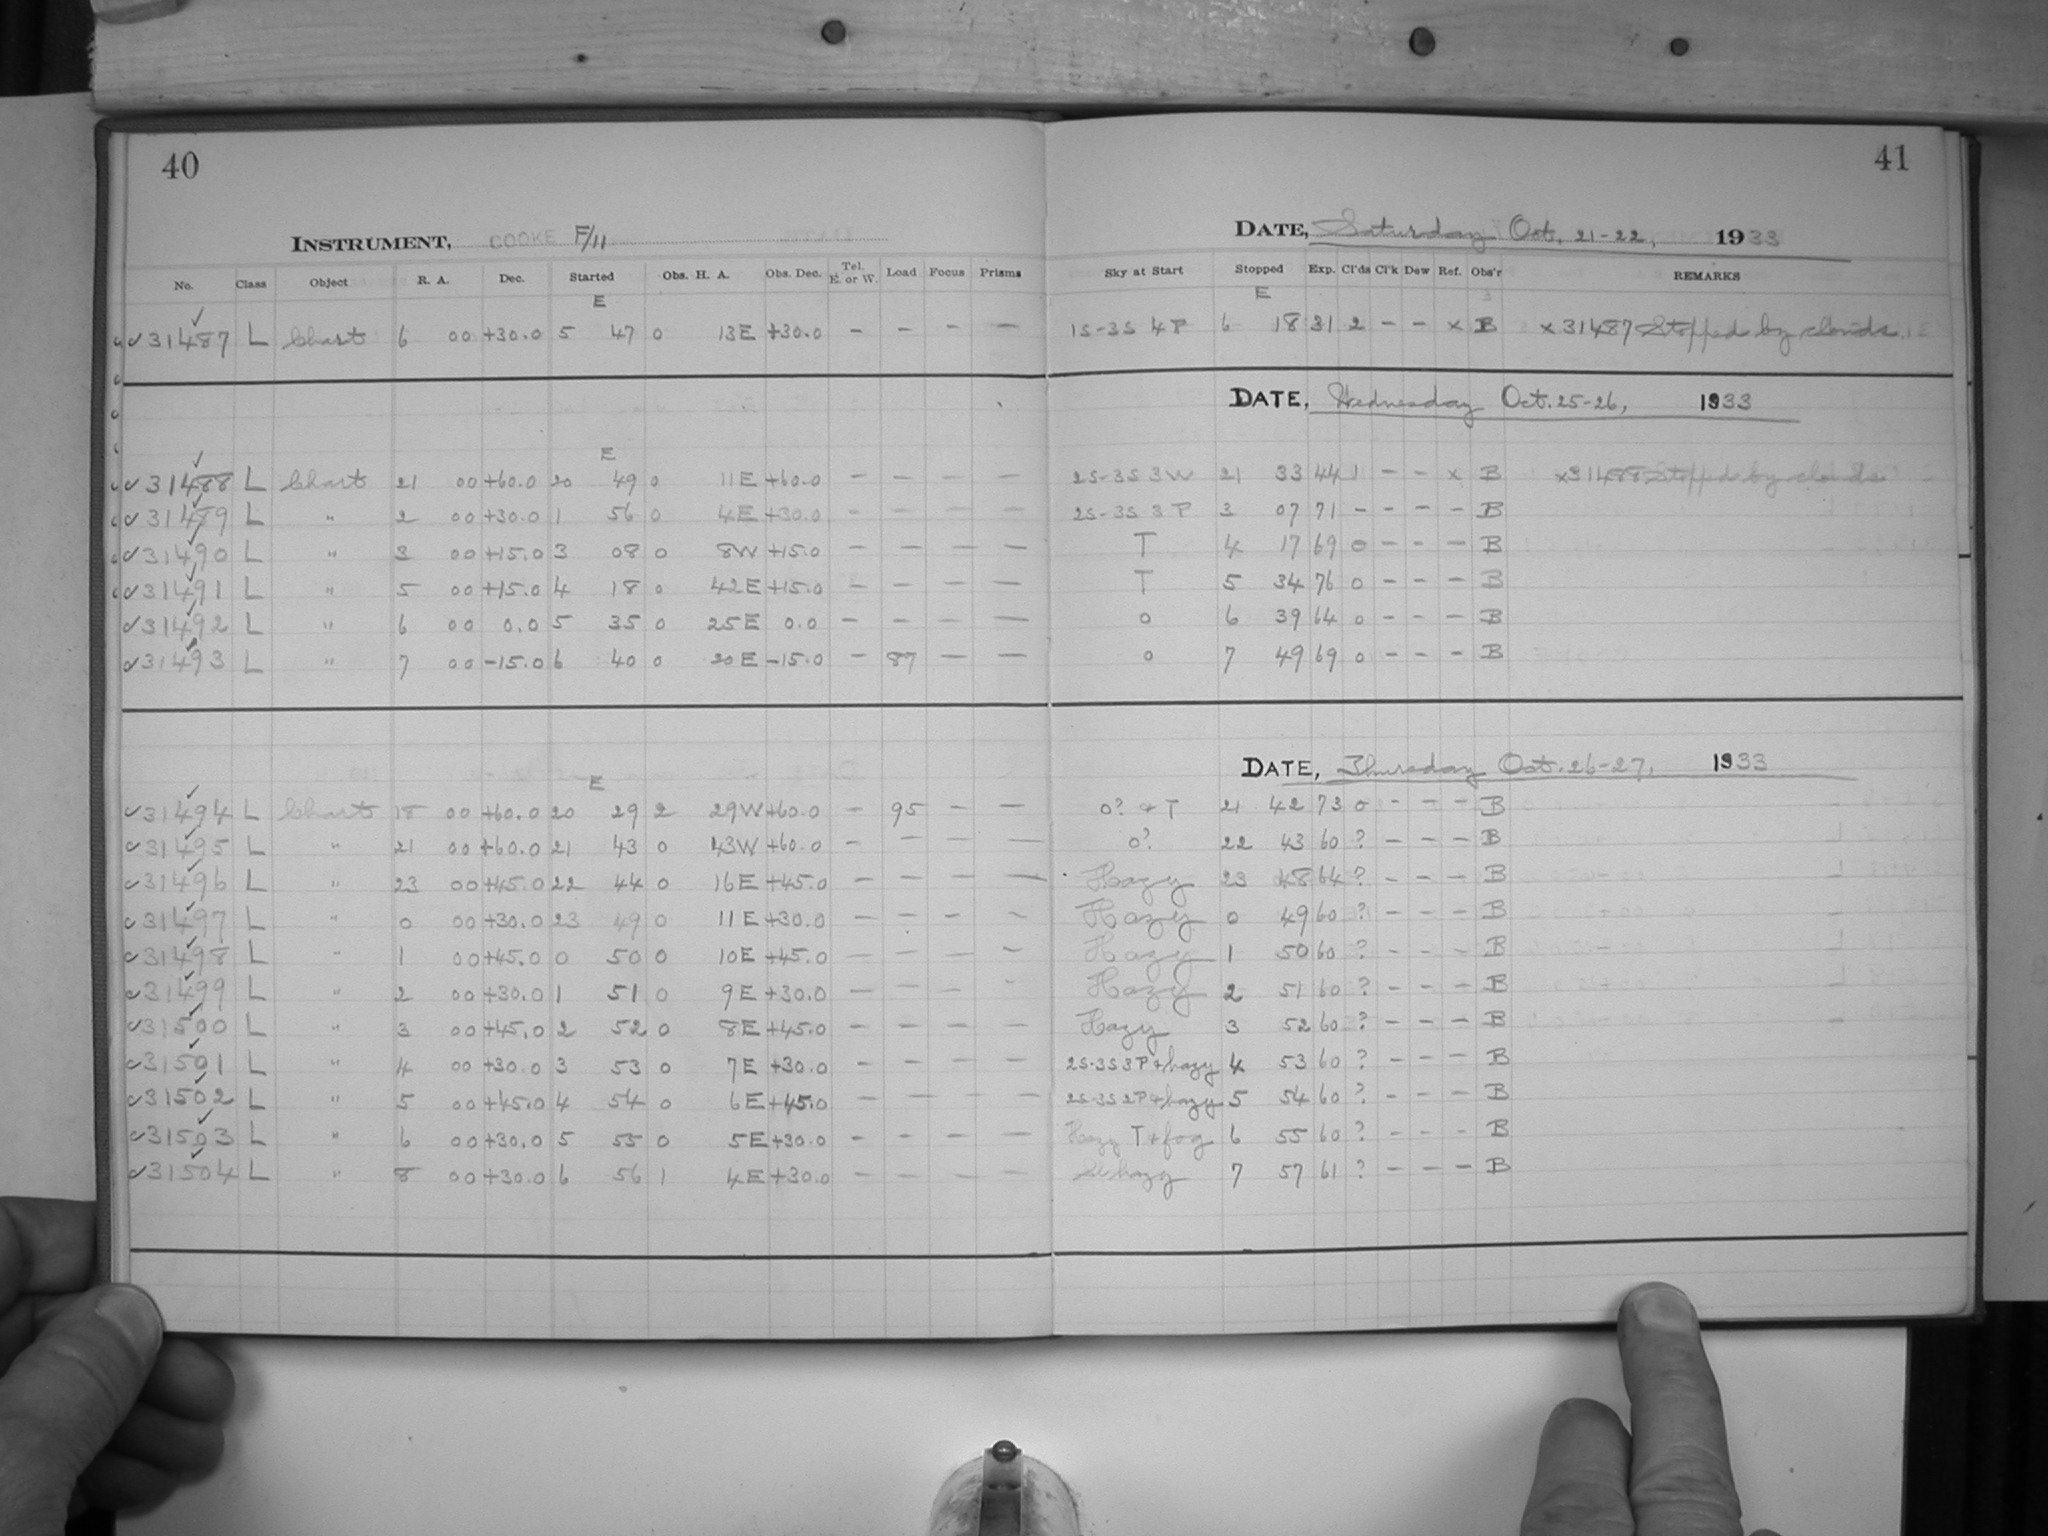 40
INSTRUMENT, COOKE F/11
No. Class Object R. A. Dec. Started Obs. H. A. Obs. Dec. Tel. E. or W. Load Focus Prisms
E
31487 L Chart 6 00 +30.0 5 47 0 13E +30.0 - - - -
E
31488 L Chart 21 00 +60.0 20 49 0 11E +60.0 - - - -
31489 L " 2 00 +30.0 1 56 0 4E +30.0 - - - -
31490 L " 3 00 +15.0 3 08 0 8W +15.0 - - - -
31491 L " 5 00 +15.0 4 18 0 42E +15.0 - - - -
31492 L " 6 00 0.0 5 35 0 25E 0.0 - - - -
31493 L " 7 00 -15.0 6 40 0 20E -15.0 - 87 - -
E
31494 L Chart 18 00 +60.0 20 29 2 29W +60.0 - 95 - -
31495 L " 21 00 +60.0 21 43 0 43W +60.0 - - - -
31496 L " 23 00 +45.0 22 44 0 16E +45.0 - - - -
31497 L " 0 00 +30.0 23 49 0 11E +30.0 - - - -
31498 L " 1 00 +45.0 0 50 0 10E +45.0 - - - -
31499 L " 2 00 +30.0 1 51 0 9E +30.0 - - - -
31500 L " 3 00 +45.0 2 52 0 8E +45.0 - - - -
31501 L " 4 00 +30.0 3 53 0 7E +30.0 - - - -
31502 L " 5 00 +45.0 4 54 0 6E +45.0 - - - -
31503 L " 6 00 +30.0 5 55 0 5E +30.0 - - - -
31504 L " 8 00 +30.0 6 56 1 4E +30.0 - - - -
41
DATE, Saturday Oct. 21-22, 1933
Sky at Start Stopped Exp. Cl'ds Cl'k Dew Ref. Obs'r REMARKS
E
1S-3S 4P 6 18 31 2 - - x B x31487 Stopped by clouds
DATE, Wednesday Oct. 25-26, 1933
2S-3S 3W 21 33 44 1 - - x B x31488 Stopped by clouds
2S-3S 3P 3 07 71 - - - - B
T 4 17 69 0 - - - B
T 5 34 76 0 - - - B
0 6 39 64 0 - - - B
0 7 49 69 0 - - - B
DATE, Thursday Oct. 26-27, 1933
0? + T 21 42 73 0 - - - B
0? 22 43 60 ? - - - B
Hazy 23 48 64 ? - - - B
Hazy 0 49 60 ? - - - B
Hazy 1 50 60 ? - - - B
Hazy 2 51 60 ? - - - B
Hazy 3 52 60 ? - - - B
2S-3S 3P + hazy 4 53 60 ? - - - B
2S-3S 2P + hazy 5 54 60 ? - - - B
Hazy T + fog 6 55 60 ? - - - B
Sl hazy 7 57 61 ? - - - B